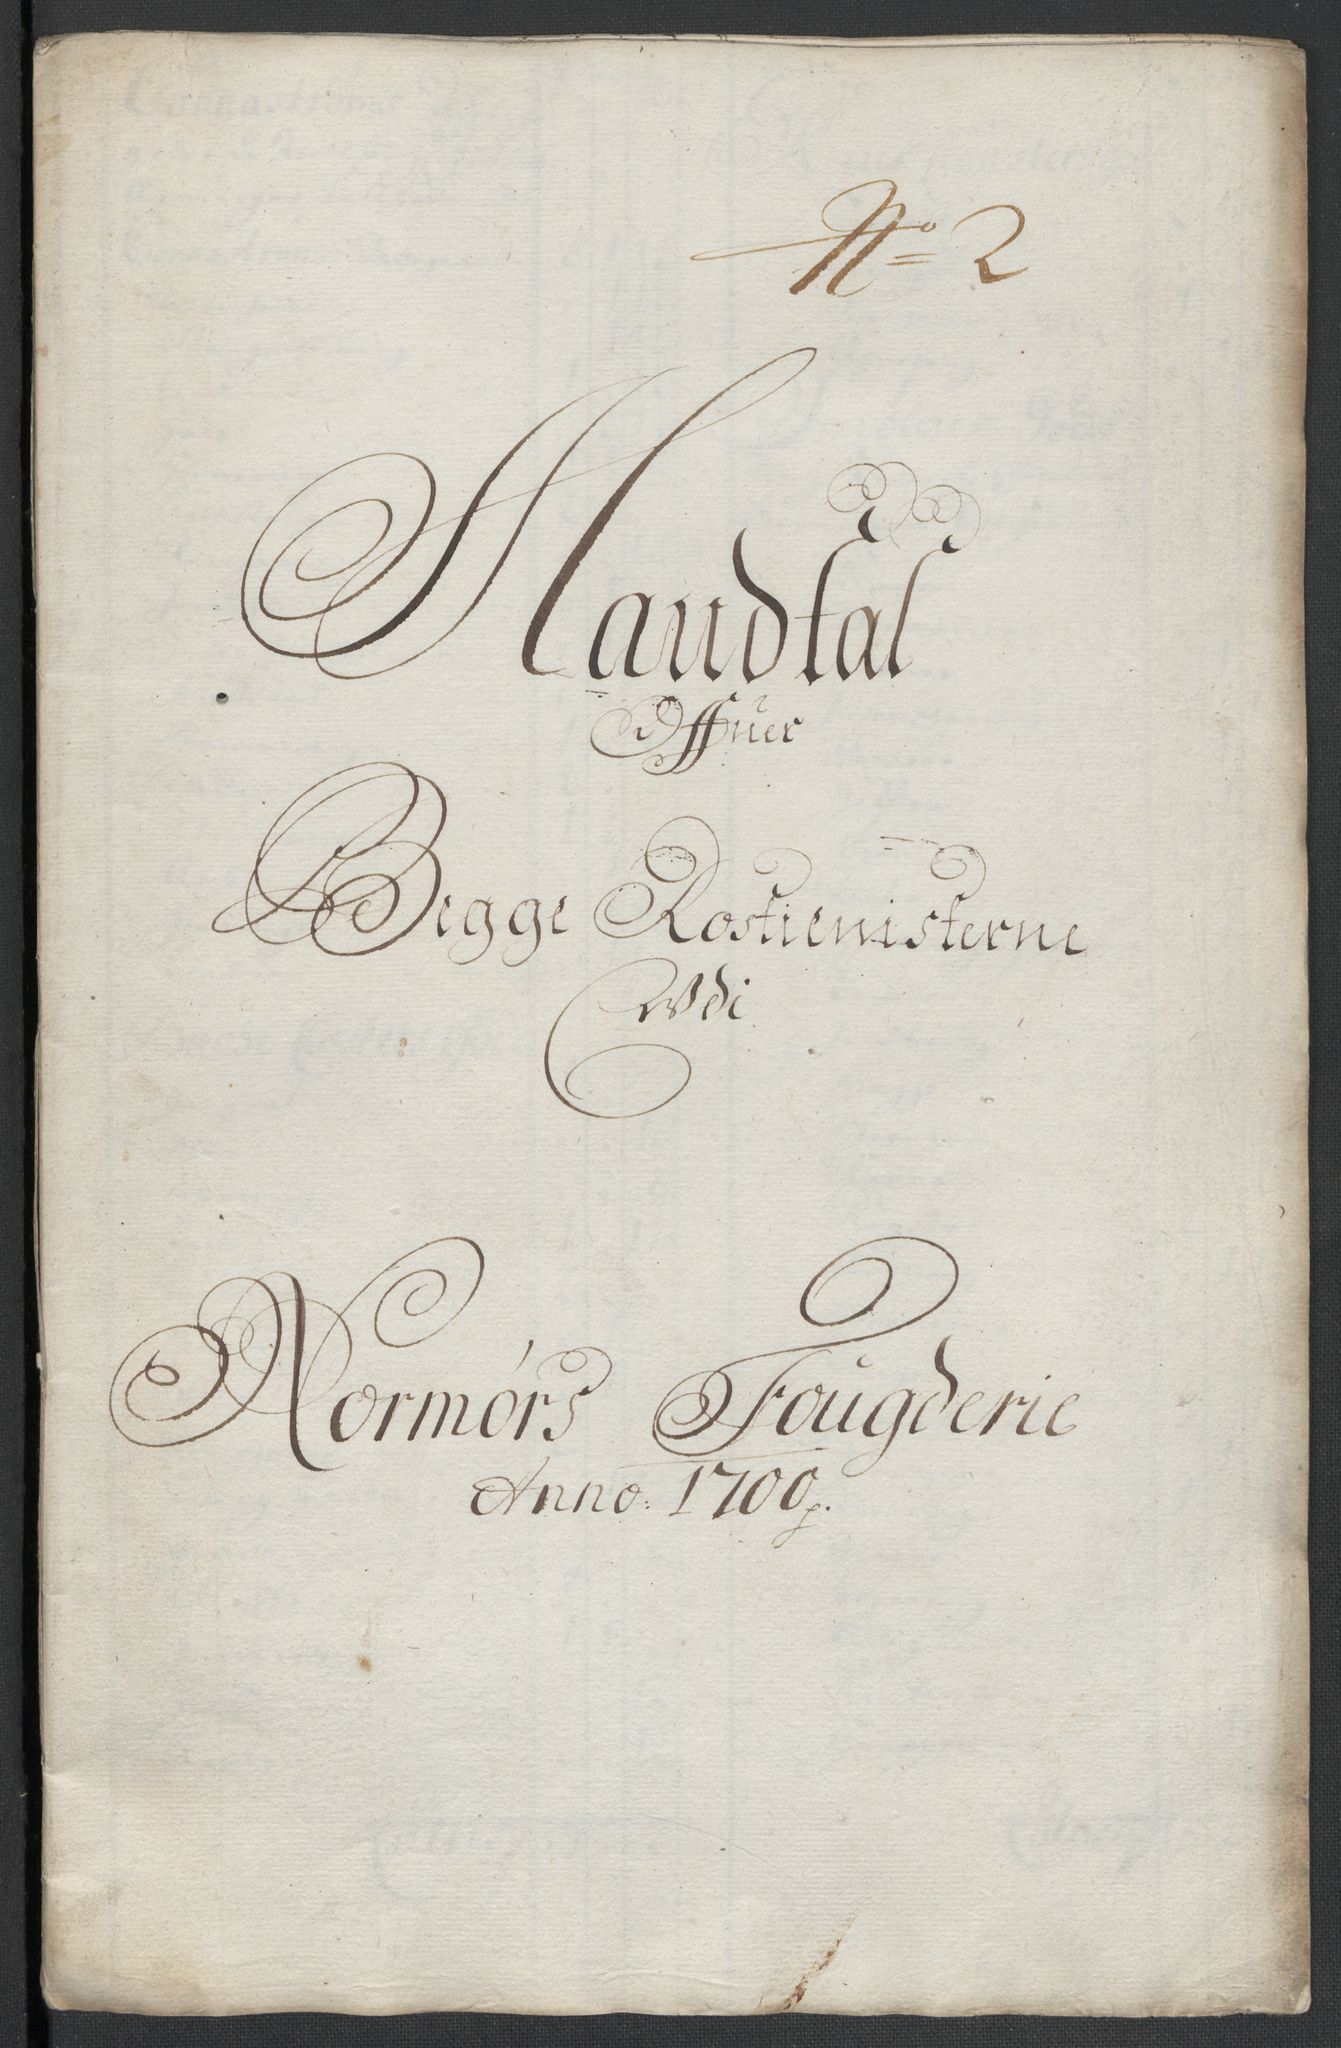 No 2
Mandtal
Offuer
Begge Rostienisterne
Vdi
Normørs Fougderie
Anno: 1700